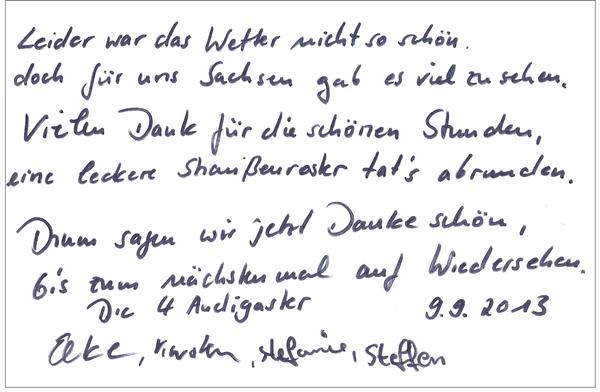 Leider war das Wetter nicht so schön.
doch für uns Sachsen gab es viel zu sehen.
Vielen Dank für die schönen Stunden,
eine leckere Straußenroster tat's abrunden.
Drum sagen wir jetzt Danke schön,
bis zum nächsten mal auf Wiedersehen.
Die 4 Audigaster 9.9.2013
Elke, Karsten, Stefanie, Steffen